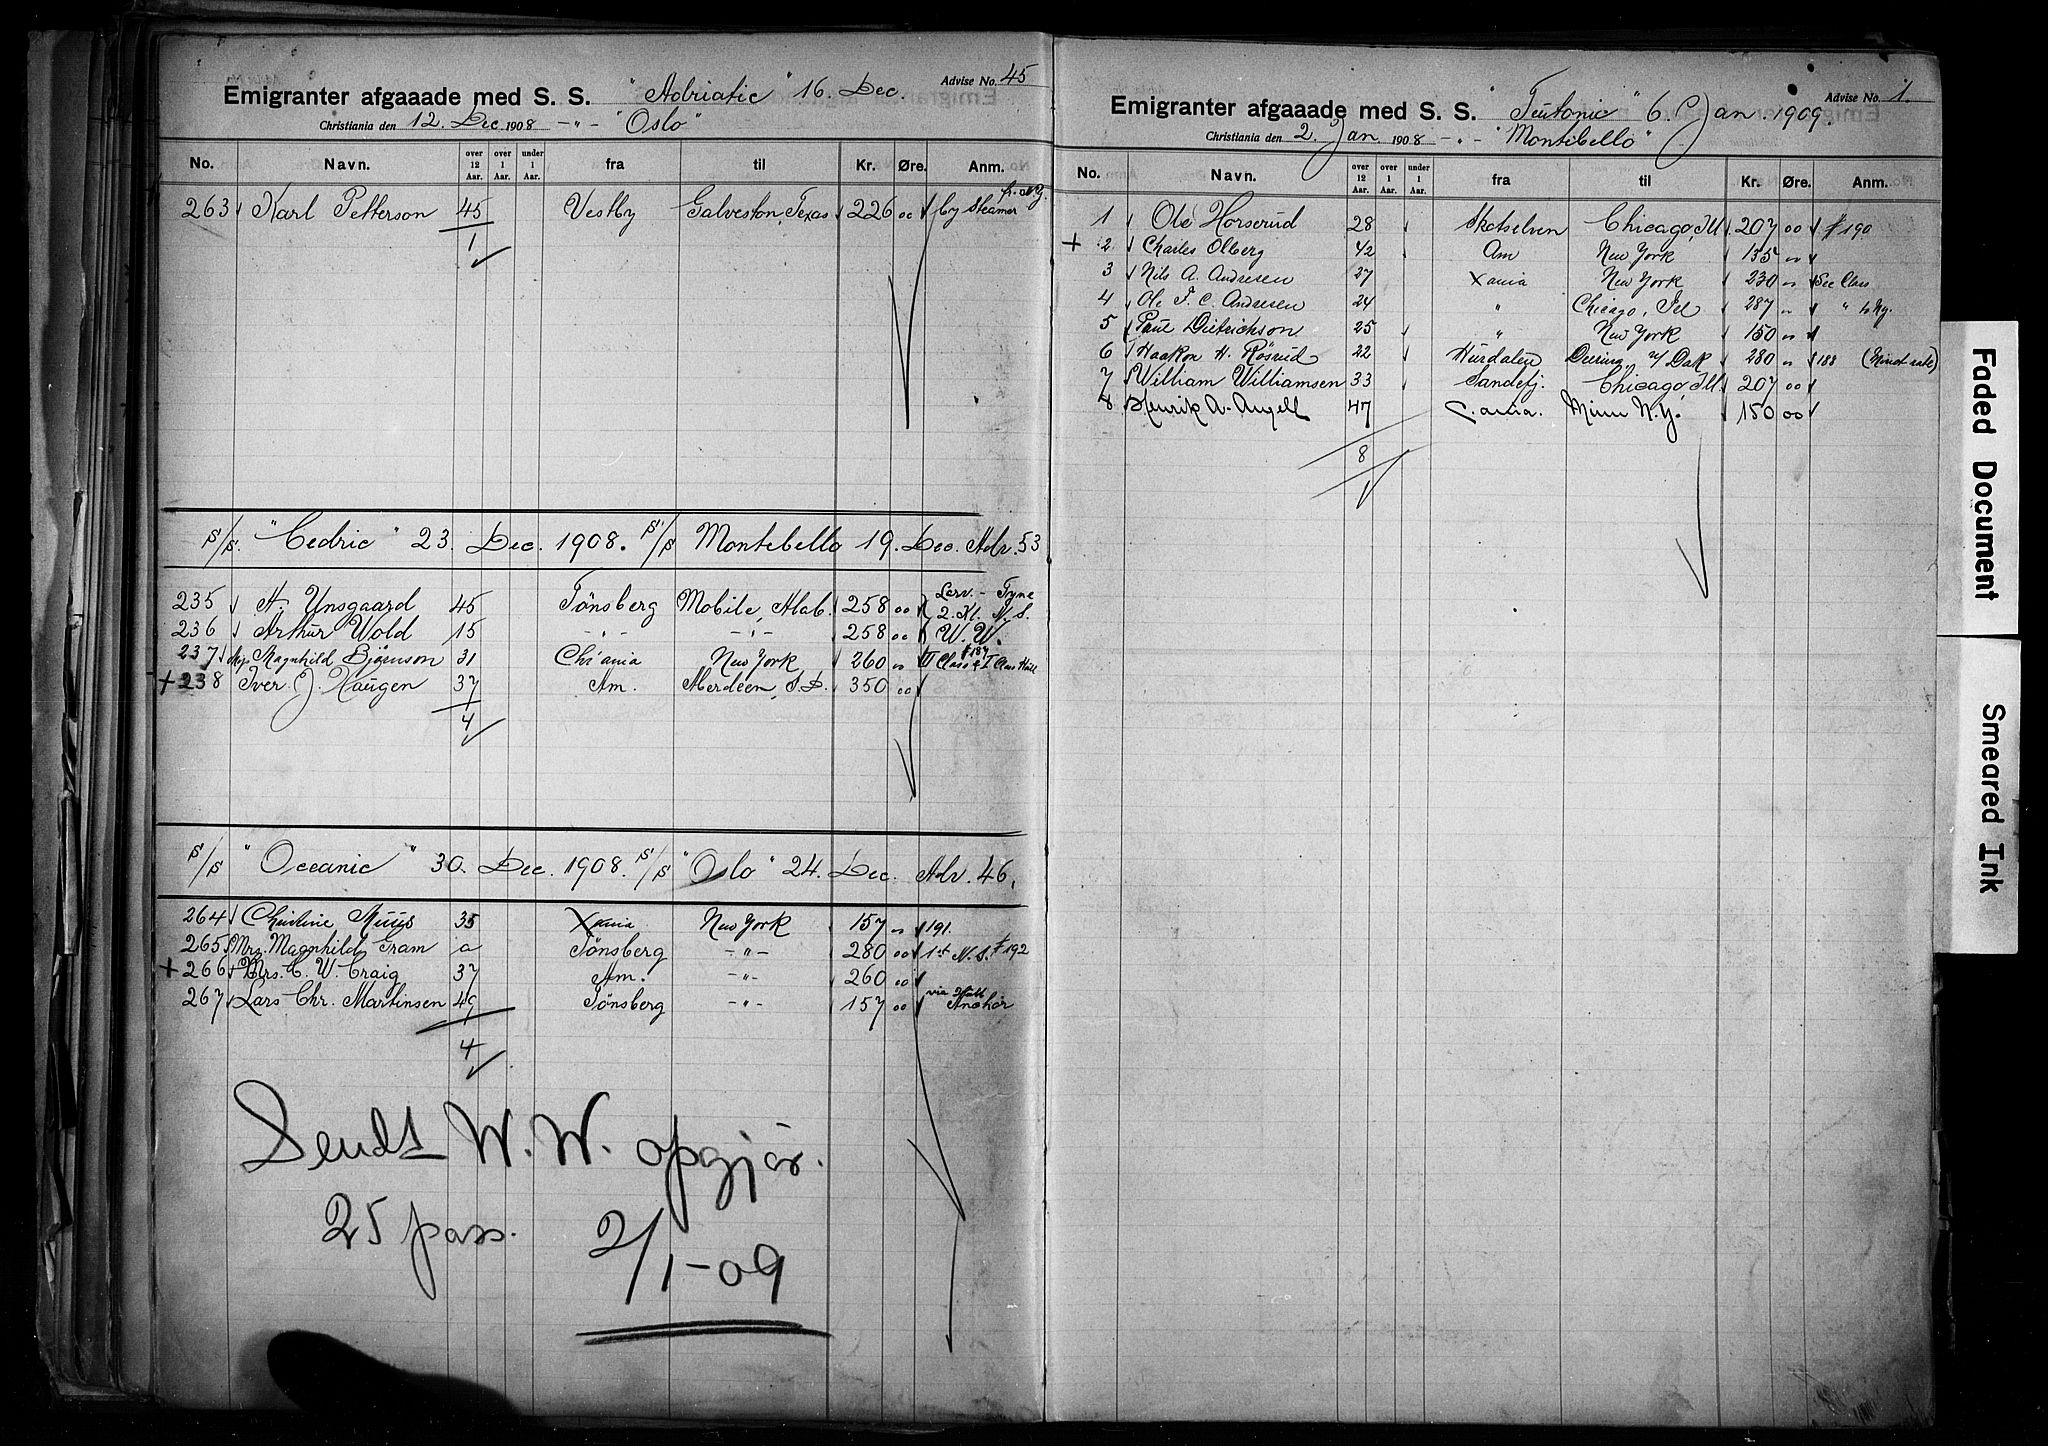 Advise No. 45
Emigranter afgaaade med S. S. "Adriatic" 16. Dec.
Christiania den 12. Dec. 1908 -„- "Oslo"
No. Navn. over 12 Aar. over 1 Aar. under 1 Aar. fra til Kr. Øre. Anm.
263 Karl Petterson 45 Vestby Galveston, Texas 226 00 by Steamer fr. N.Y.
1
S/S. "Cedric" 23. Dec. 1908. S/S Montebello 19. Dec. Adv. 53
235 A. Unsgaard 45 Tönsberg Mobile, Alab. 258 00 Larv. - Tyne 2. Kl. N. S.
236 Arthur Wold 15 -„- -„- 258 00 W. W.
237 Magnhild Björnson 31 Chiania New York 260 „ III Class & I Class
+ 238 Iver J. Haugen 37 Am. Aberdeen, S.D. 350 00
4
S/S "Oceanic" 30. Dec. 1908. S/S "Oslo" 24. Dec. Adv. 46.
264 Christine Muus 35 Xania New York 157 „ 191.
265 Mrs. Magnhild Fram a Tönsberg -„- 280 00 1st N. S. # 192
+ 266 Mrs. C. W. Craig 37 Am. -„- 260 00
267 Lars Chr. Martinsen 49 Tönsberg -„- 157 00 via Hull Anchor
4
Sendt W. W. opgjör.
25 pass. 2/1-09
Advise No. 1.
Emigranter afgaaade med S. S. "Teutonic" 6. Jan. 1909.
Christiania den 2. Jan. 1908 -„- "Montebello"
No. Navn. over 12 Aar. over 1 Aar. under 1 Aar. fra til Kr. Øre. Anm.
1 Ole Horserud 28 Skotselven Chicago, Ill. 207 00 # 190
+ 2 Charles Olberg 42 Am New York 135 „
3 Nils A. Andresen 27 Xania New York 230 „ Sec Class
4 Ole F. C. Andresen 24 „ Chicago, Ill 287 „ „ to Ny.
5 Paul Dietrichson 25 „ New York 150 „
6 Haakon H. Rösrud 22 Hurdalen Deering, N/Dak 280 „ 188
7 William Williamsen 33 Sandefj. Chicago, Ill. 207 00
8 Henrik A. Angell 47 C.ania. N.Y. 150 00
8
Faded Document
Smeared Ink